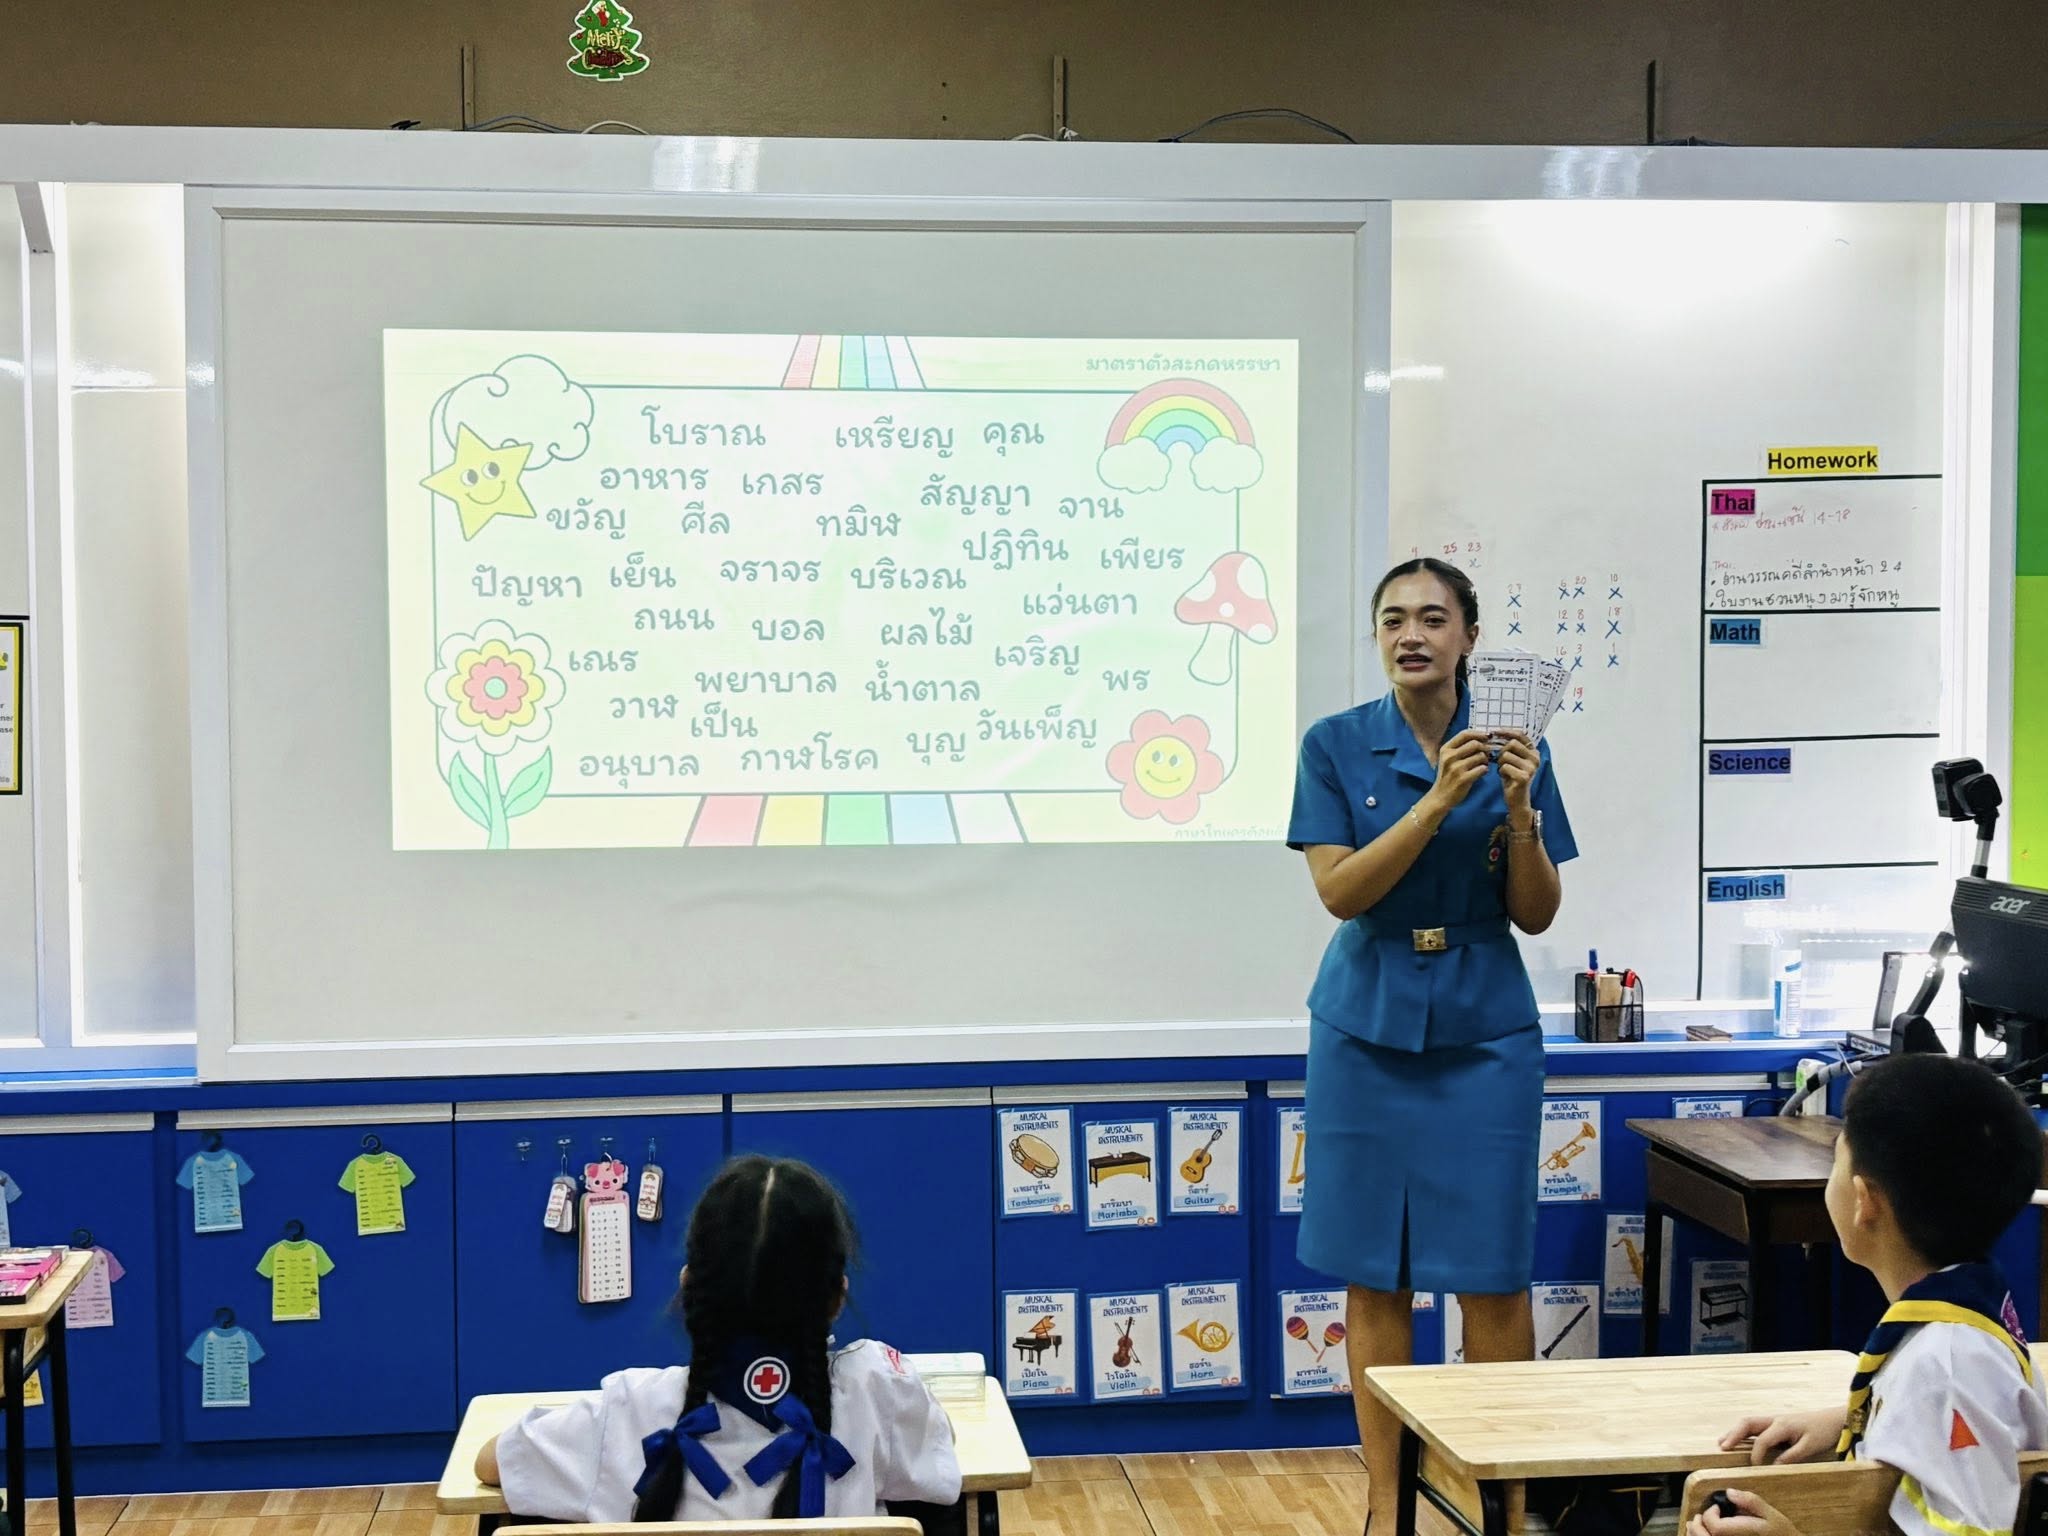 Merry
มาตราตัวสะกดหรรษา
โบราณ เหรียญ คุณ
อาหาร เกสร สัญญา จาน
ขวัญ ศีล ทมิฬ ปฏิทิน เพียร
ปัญหา เย็น จราจร บริเวณ
ถนน บอล ผลไม้ แว่นตา
เณร พยาบาล น้ำตาล เจริญ พร
วาฬ เป็น บุญ วันเพ็ญ
อนุบาล กาฬโรค
Homework
Thai
14-18
งานวรรณคดีลำนำหน้า 24
Math
Science
English
acer
25 23
27 6 20 10
11 12 8 18
16 3 1
19
มาตราตัว
สะกดหรรษา
MUSICAL INSTRUMENTS
แทมบูรีน
Tambourine
MUSICAL INSTRUMENTS
มาริมบา
Marimba
MUSICAL INSTRUMENTS
กีตาร์
Guitar
MUSICAL INSTRUMENTS
ทรัมเป็ต
Trumpet
MUSICAL INSTRUMENTS
เปียโน
Piano
MUSICAL INSTRUMENTS
ไวโอลิน
Violin
MUSICAL INSTRUMENTS
ฮอร์น
Horn
MUSICAL INSTRUMENTS
มาราคัส
Maracas